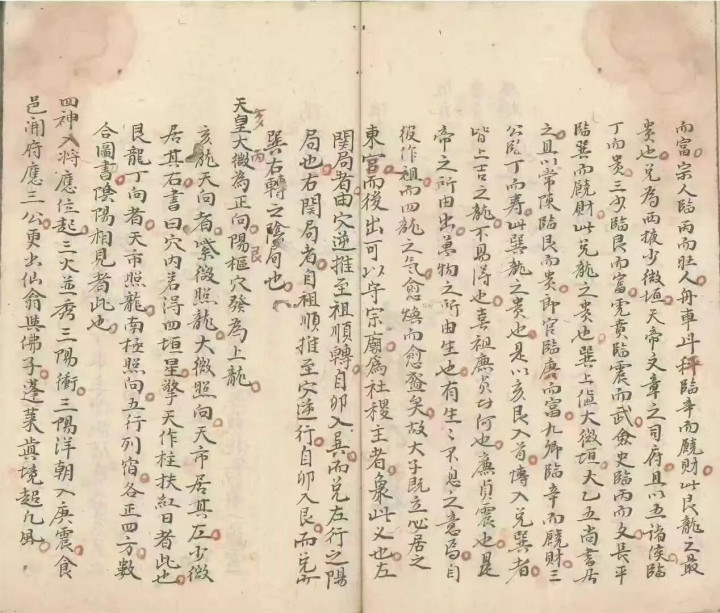 而富宗人臨丙而壯人舟車斗秤臨辛而饒財此艮龍之最
貴也兌為西掖少微垣天帝文章之司府且以五諸侯臨
丁而貴三少臨艮而富虎賁臨震而武僉史臨丙而文長平
臨巽而饒財此兌龍之貴也巽上值大微垣大乙五尚書居
之且以常陳臨艮而貴郎官臨庚而富九卿臨辛而饒財三
公臨丁而壽此巽龍之貴也是以亥艮入首博入兌巽者
皆上吉之龍不易得也喜祖廉貞此何也廉貞震也是
帝之所由出萬物之所由生也有生生不息之意焉自
後作祖而四龍之气愈煥而愈盛矣故大子既立必居之
東宮而後出可以守宗廟為社稷主者象此又也左
関局者由穴逆推至祖順轉自卯入巽而兌左行之陽
局也右関局者自祖順推至穴逆行自卯入艮而兌
巽右轉之陰局也
亥 丙 艮
天皇大微為正向陽樞穴發為上龍
亥龍天向者紫微照龍大微照向天市居其左少微
居其右書曰穴內若得四垣星擎天作柱扶紅日者此也
艮龍丁向者天市照龍南極照向五行列宿各正四方數
合圖書陰陽相見者此也
四神入将應位起三火並秀三陽衝三陽洋朝入庚震食
邑開府應三公更出仙翁與佛子蓬萊真境超凡風